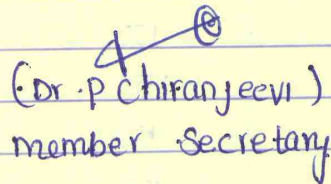 (Dr. P Chiranjeevi)
member secretary